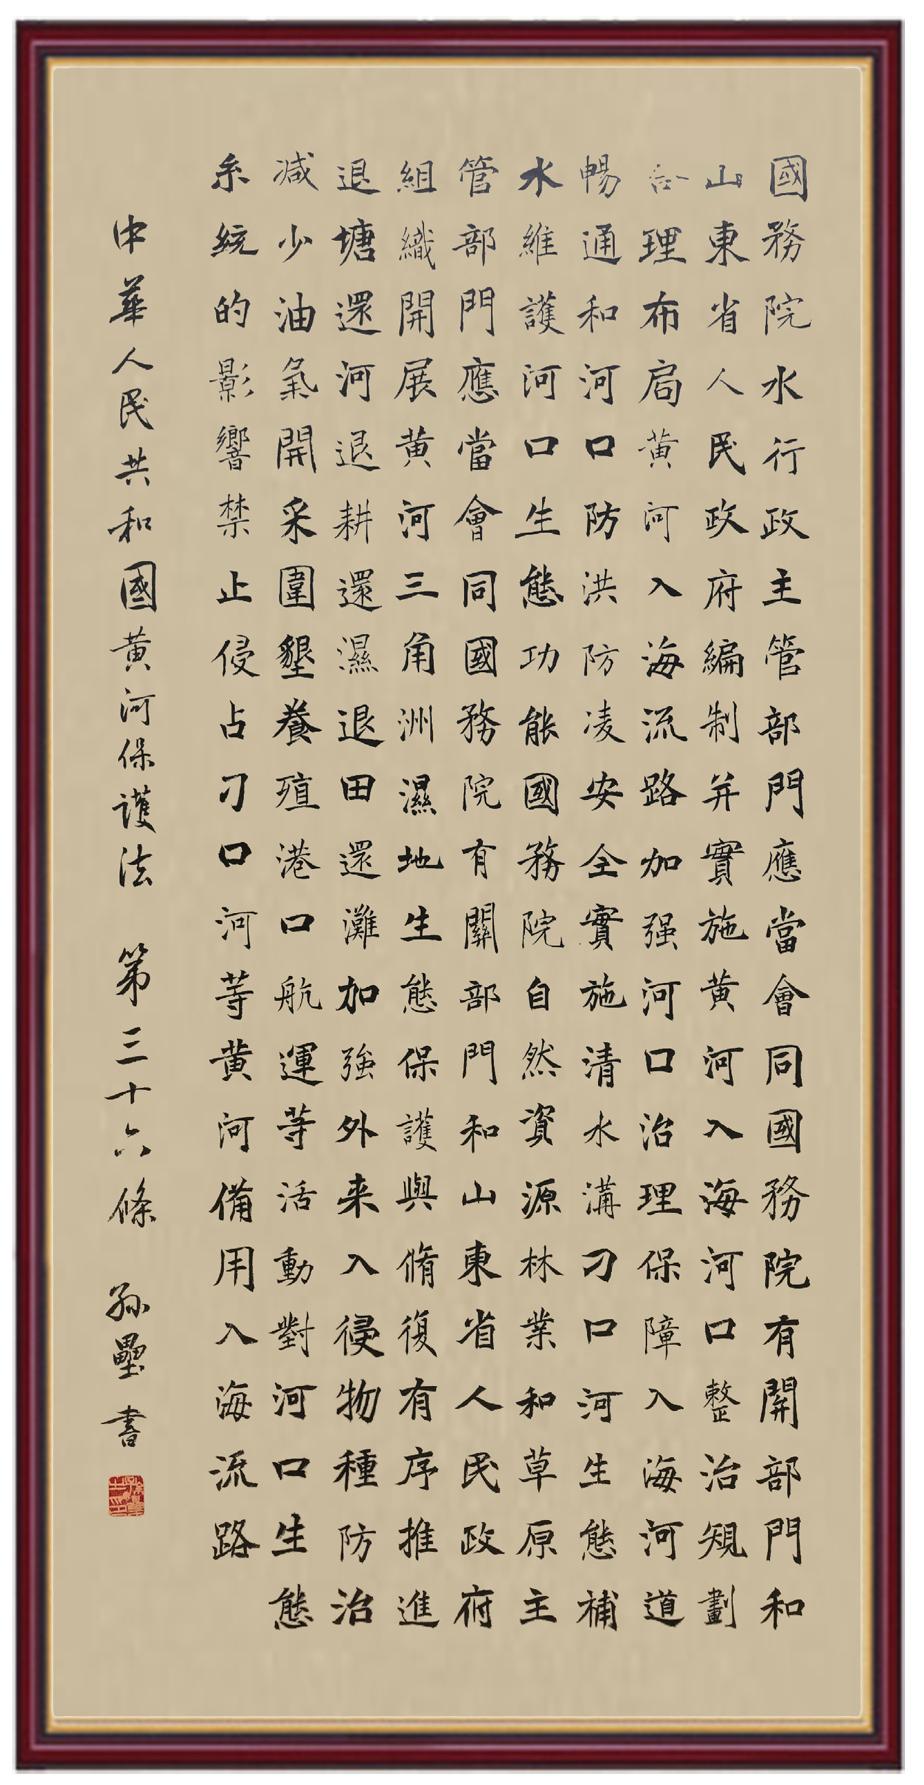 國務院水行政主管部門應當會同國務院有關部門和
山東省人民政府編制并實施黄河入海河口整治規劃
合理布局黄河入海流路加强河口治理保障入海河道
暢通和河口防洪防凌安全實施清水溝刁口河生態補
水維護河口生態功能國務院自然資源林業和草原主
管部門應當會同國務院有關部門和山東省人民政府
組織開展黄河三角洲濕地生態保護與脩復有序推進
退塘還河退耕還濕退田還灘加強外来入侵物種防治
減少油氣開采圍墾養殖港口航運等活動對河口生態
系統的影響禁止侵占刁口河等黄河備用入海流路
中華人民共和國黄河保護法 第三十六條 孫壘書